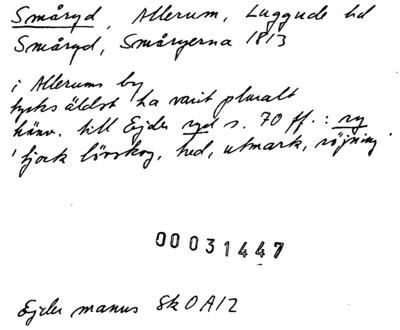 Småryd, Allerum, Luggude hd
Småryd, Småryerna 1813
i Allerums by
tycks äldst ha varit pluralt
hänv. till Ejder ryd s. 70 ff.: ry
'tjock lövskog, hed, utmark, röjning'
00031447
Ejder manus SkOA12